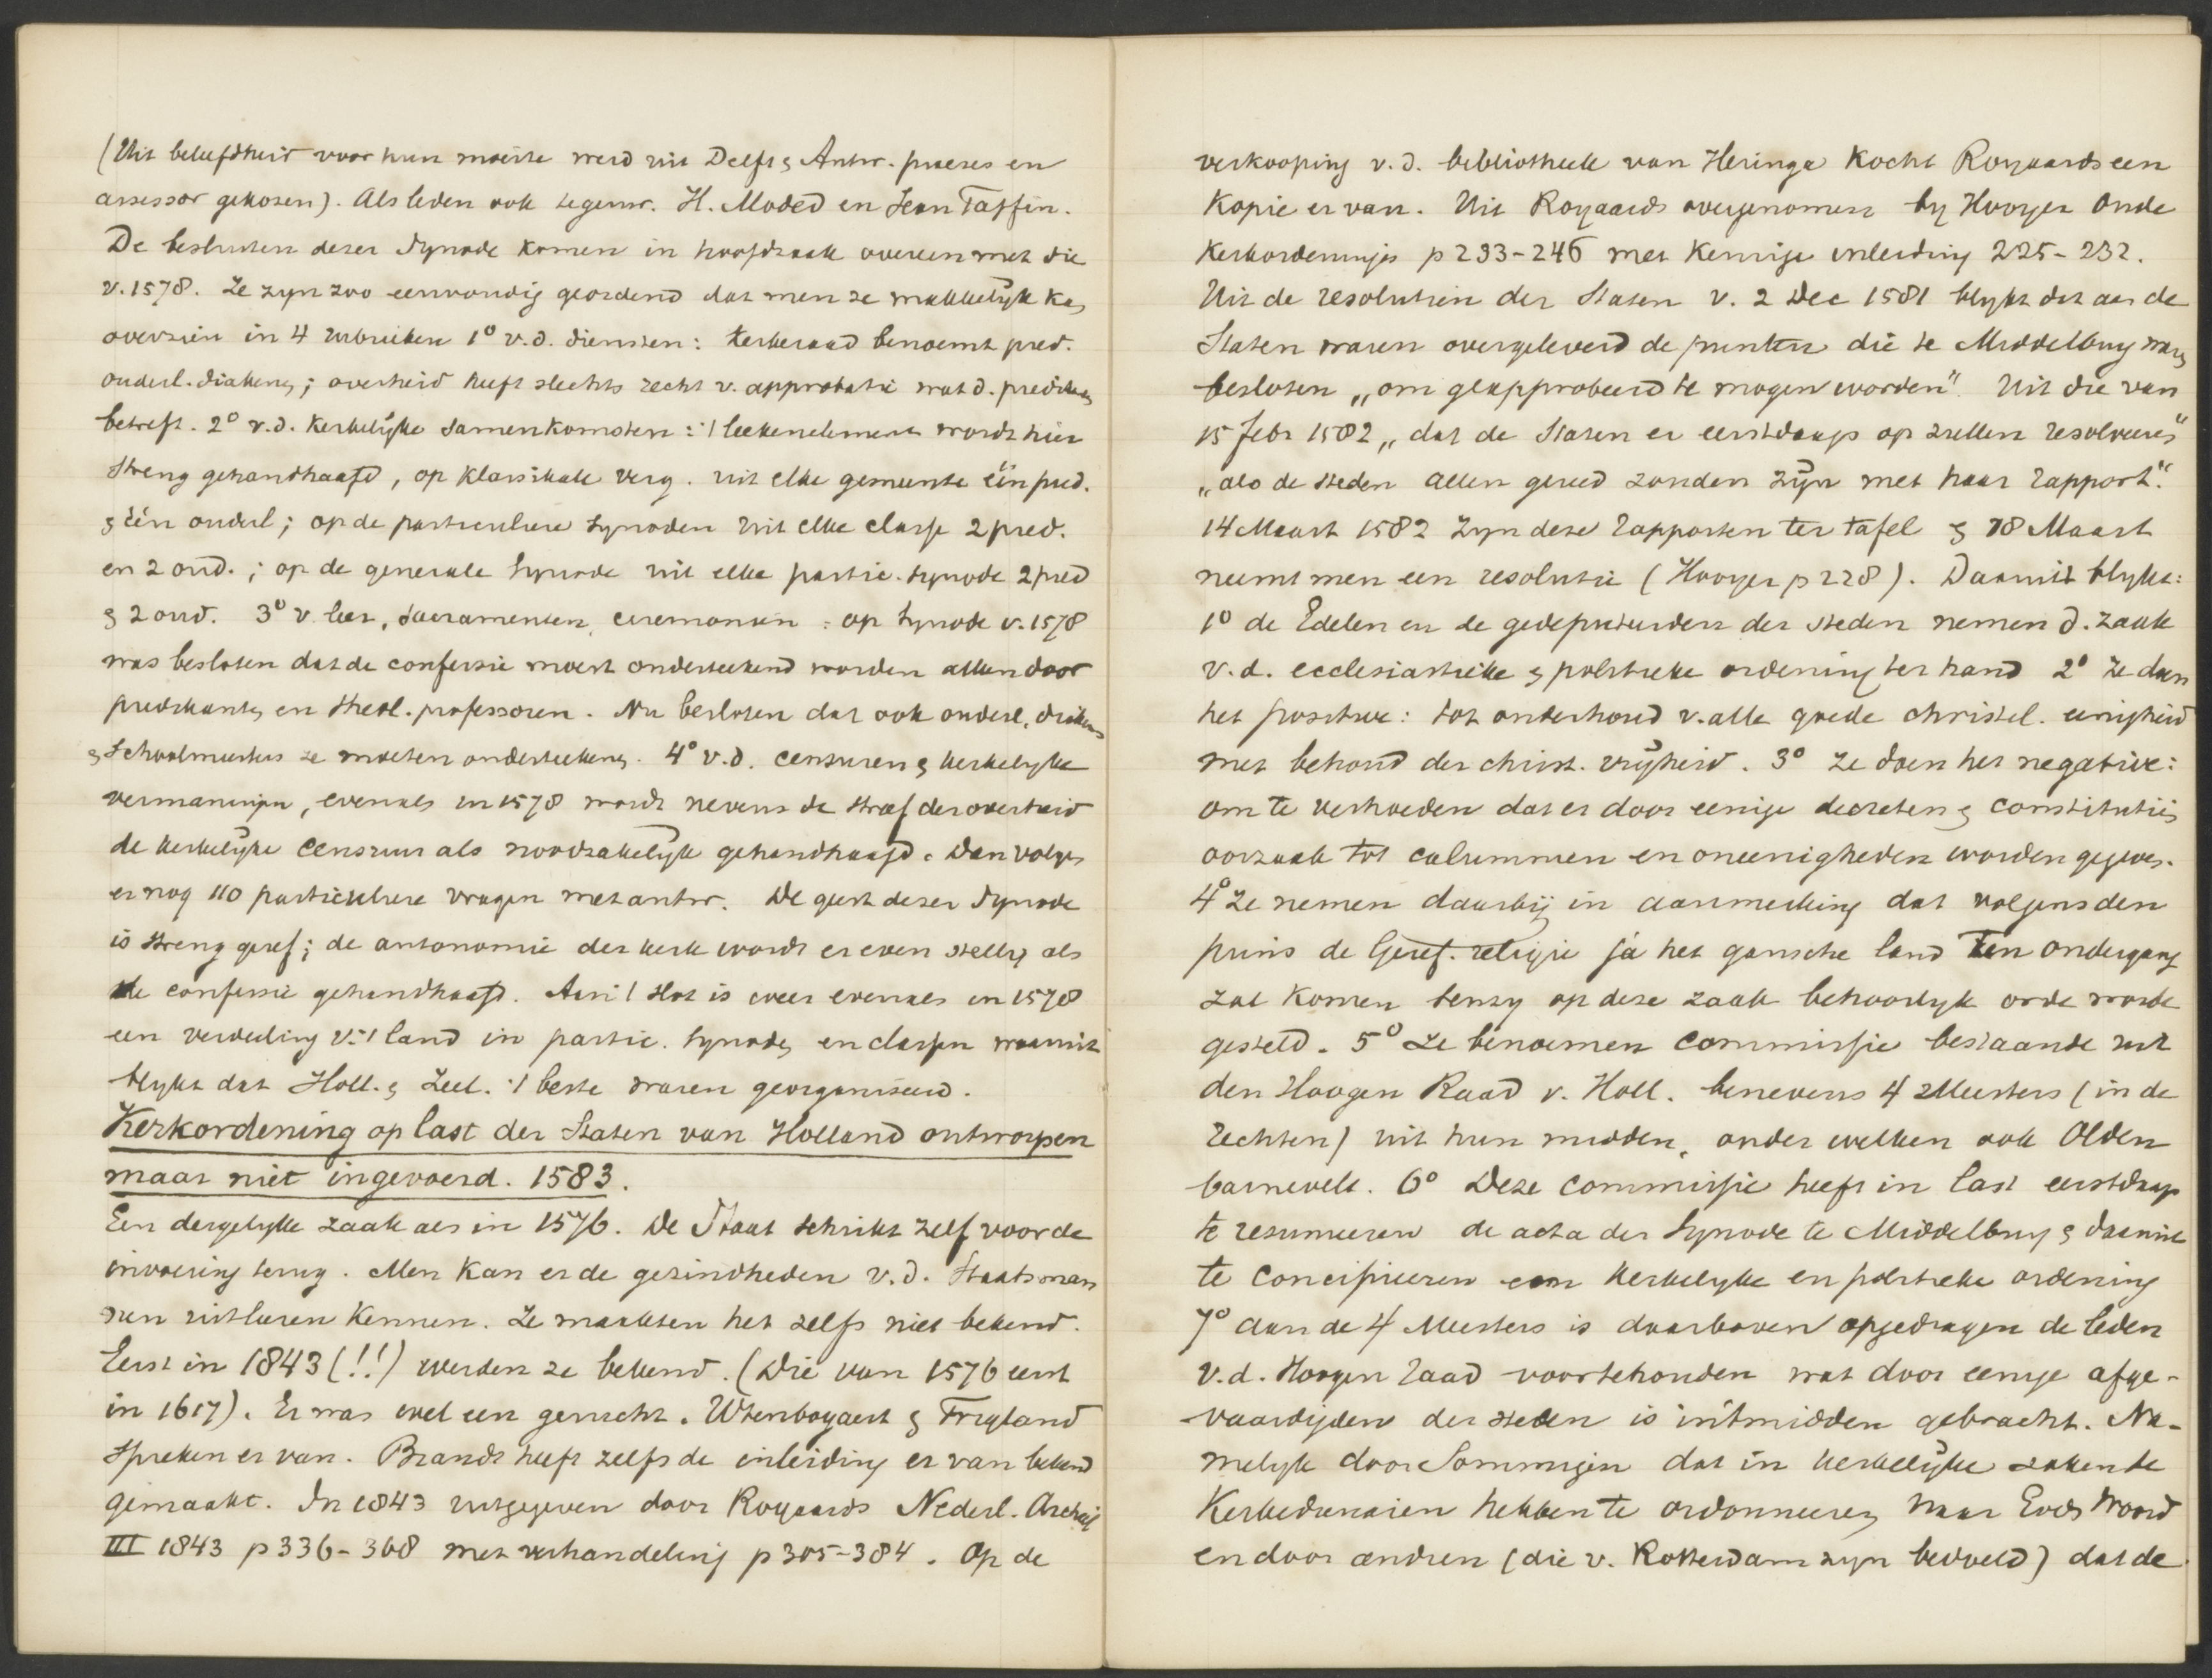 (Uit beleefdheid voor hun moeite werd uit Delft & Antw. praeses en
assessor gekozen). Als leden ook tegenw. H. Moded en Jean Taffin.
De besluiten dezer Synode komen in hoofdzaak overeen met die
v. 1578. Ze zyn zoo eenvoudig geordend dat men ze makkelijk kan
overzien in 4 rubrieken 1° v.d. diensten: kerkeraad benoemt pred.
ouderl. diakenen; overheid heeft slechts recht v. approbatie wat d. predikanten
betreft. 2° v.d. Kerkelijke Samenkomsten: 't leekenelement wordt hier
streng gehandhaafd, op Klassikale verg. uit elke gemeente één pred.
& één ouderl; op de particuliere Synoden uit elke classe 2 pred.
en 2 oud.; op de generale Synode uit elke partic. synode 2 pred
& 2 oud. 3° v. leer, sacramenten, ceremoniën: op Synode v. 1578
was besloten dat de confessie moest onderteekend worden alleen door
predikanten en theol. professoren. Nu besloten dat ook ouderl. diakens
& Schoolmeesters ze moeten onderteekenen. 4° v.d. censuren & kerkelyke
vermaningen, evenals in 1578 wordt nevens de straf der overheid
de kerkelijke censuur als noodzakelijk gehandhaafd. Dan volgen
er nog 110 particuliere vragen met antw. De geest dezer Synode
is streng geref; de autonomie der kerk wordt er even stellig als
de confessie gehandhaafd. Aan 't slot is weer evenals in 1578
een verdeeling v. 't land in partic. synoden en classen waaruit
blykt dat Holl. & Zeel. 't beste waren georganiseerd.
Kerkordening op last der Staten van Holland ontworpen
maar niet ingevoerd. 1583.
Een dergelyke zaak als in 1576. De Staat schrikt zelf voor de
invoering terug. Men kan er de gezindheden v.d. Staatsman
nen uit leeren kennen. Ze maakten het zelfs niet bekend.
Eerst in 1843 (!!) werden ze bekend. (Die van 1576 eerst
in 1617). Er was wel een gerucht. Wtenbogaert & Trigland
spreken er van. Brandt heeft zelfs de inleiding er van bekend
gemaakt. In 1843 uitgegeven door Royaards Nederl. Archief
III 1843 p 336-368 met verhandeling p 305-384. Op de
verkooping v.d. bibliotheek van Heringa kocht Royaards een
Kopie er van. Uit Royaards overgenomen by Hooyer Oude
Kerkordeningen p 233-246 met Keurige inleiding 225-232.
Uit de resolutien der Staten v. 2 Dec 1581 blykt dat aan de
Staten waren overgeleverd de punten die te Middelburg waren
besloten „om geapprobeerd te mogen worden". Uit die van
15 febr 1582 „dat de Staten er eerstdaags op zullen resolveeren"
„als de steden allen gereed zouden zijn met haar rapport."
14 Maart 1582 zyn deze rapporten ter tafel & 18 Maart
neemt men een resolutie (Hooyer p 228). Daaruit blykt:
1° de Edelen en de gedeputeerden der steden nemen d. zaak
v.d. ecclesiastieke & politieke ordening ter hand 2° Ze doen
het positieve: tot onderhoud v. alle goede christel. eenigheid
met behoud der christ. vrijheid. 3° Ze doen het negative:
om te verhoeden dat er door eenige decreten & constitutiën
oorzaak tot calumnien en oneenigheden worden gegeven.
4° Ze nemen daarbij in aanmerking dat volgens den
prins de Geref. religie ja het gansche land ten ondergang
zal komen tenzy op deze zaak behoorlyk orde worde
gesteld. 5° Ze benoemen commissie bestaande uit
den Hoogen Raad v. Holl. benevens 4 Meesters (in de
rechten) uit hun midden, onder welken ook Olden
barnevelt. 6° Deze commissie heeft in last eerstdaags
te resumeeren de acta der Synode te Middelburg & daaruit
te concipieeren een kerkelyke en politieke ordening
7° aan de 4 Meesters is daarboven opgedragen de leden
v.d. Hoogen raad voortehouden wat door eenige afge-
vaardigden der steden is in't midden gebracht. Na-
melyk door Sommigen dat in kerkelijke zaken de
Kerkedienaren hebben te ordonneeren naar Gods Woord
en door andren (die v. Rotterdam zyn bedoeld) dat de